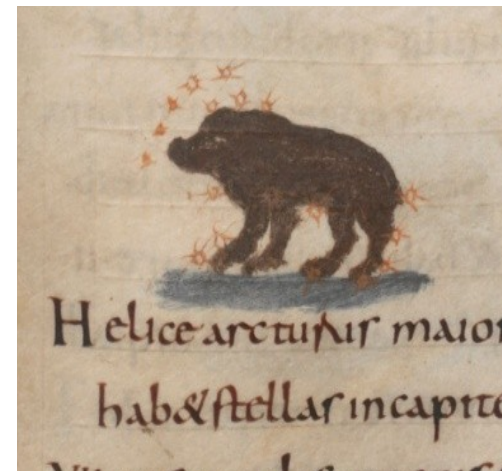 Helice arcturus maior
hab& stellas incapite